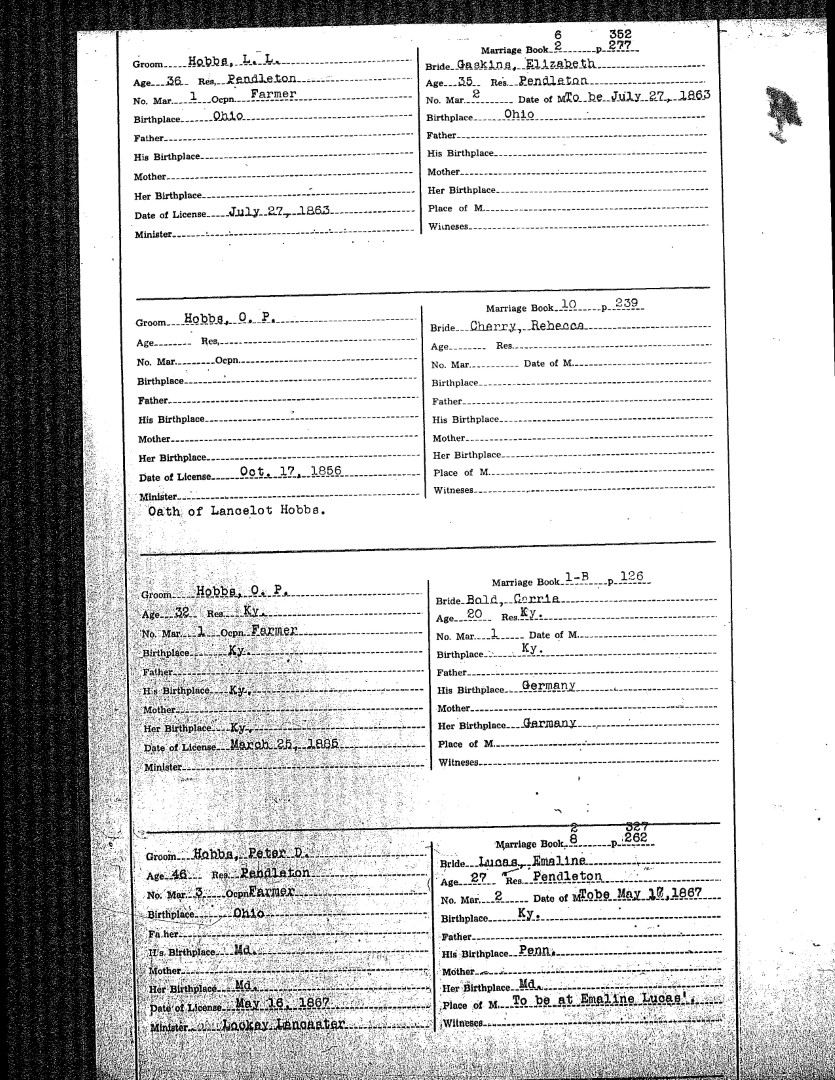 6 352
Marriage Book 2 p. 277
Groom Hobbs, L. L.
Age 36 Res. Pendleton
No. Mar. 1 Ocpn. Farmer
Birthplace Ohio
Father
His Birthplace
Mother
Her Birthplace
Date of License July 27, 1863
Minister
Bride Gaskins, Elizabeth
Age 35 Res. Pendleton
No. Mar. 2 Date of M. To be July 27, 1863
Birthplace Ohio
Father
His Birthplace
Mother
Her Birthplace
Place of M.
Witneses
Marriage Book 10 p. 239
Groom Hobbs, O. P.
Age Res.
No. Mar. Ocpn.
Birthplace
Father
His Birthplace
Mother
Her Birthplace
Date of License Oct. 17, 1856
Minister
Oath of Lancelot Hobbs.
Bride Cherry, Rebecca
Age Res.
No. Mar. Date of M.
Birthplace
Father
His Birthplace
Mother
Her Birthplace
Place of M.
Witneses
Marriage Book 1-B p. 126
Groom Hobbs, O. P.
Age 32 Res. Ky.
No. Mar. 1 Ocpn. Farmer
Birthplace Ky.
Father
His Birthplace Ky.
Mother
Her Birthplace Ky.
Date of License March 25, 1885
Minister
Bride Bold, Corria
Age 20 Res. Ky.
No. Mar. 1 Date of M.
Birthplace Ky.
Father
His Birthplace Germany
Mother
Her Birthplace Germany
Place of M.
Witneses
2 327
Marriage Book 8 p. 262
Groom Hobbs, Peter D.
Age 46 Res. Pendleton
No. Mar. 3 Ocpn. Farmer
Birthplace Ohio
Father
His Birthplace Md.
Mother
Her Birthplace Md.
Date of License May 16, 1867
Minister Lookey Lancaster
Bride Lucas, Emaline
Age 27 Res. Pendleton
No. Mar. 2 Date of M. Tobe May 17,1867
Birthplace Ky.
Father
His Birthplace Penn.
Mother
Her Birthplace Md.
Place of M. To be at Emaline Lucas'.
Witneses